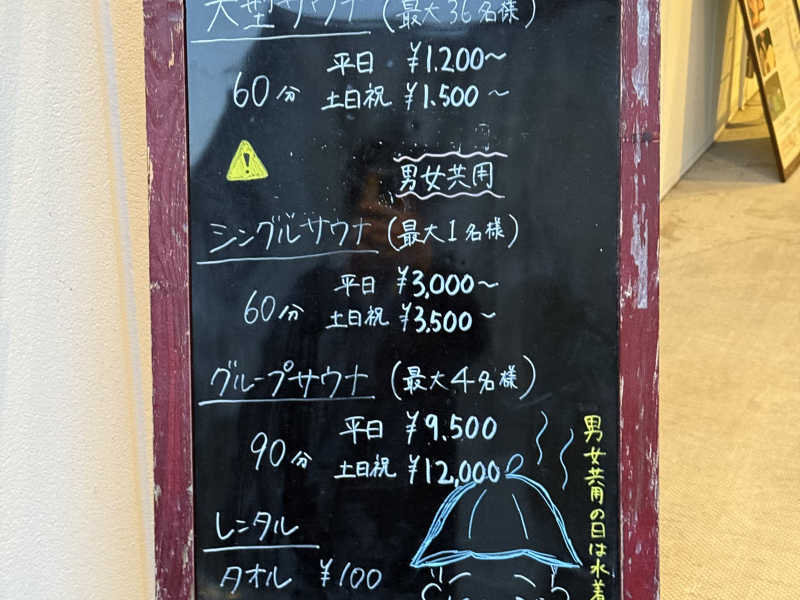 大型サウナ (最大36名様)
平日 ¥1.200～
60分 土日祝 ¥1.500～
男女共用
シングルサウナ (最大1名様)
平日 ¥3,000～
60分 土日祝 ¥3.500～
グループサウナ (最大4名様)
平日 ¥9.500
90分 土日祝 ¥12,000
レンタル
タオル ¥100
男女共用の日は水着